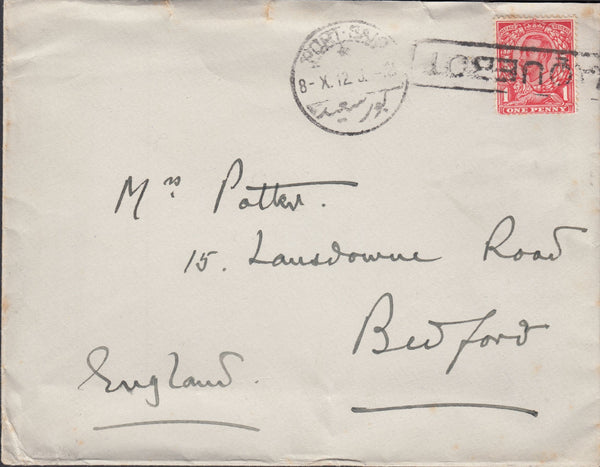 PORT-SAID
8-X.12
بور سعيد
PAQUEBOT
ONE PENNY
Mrs Potter.
15. Lansdowne Road
Bedford
England.